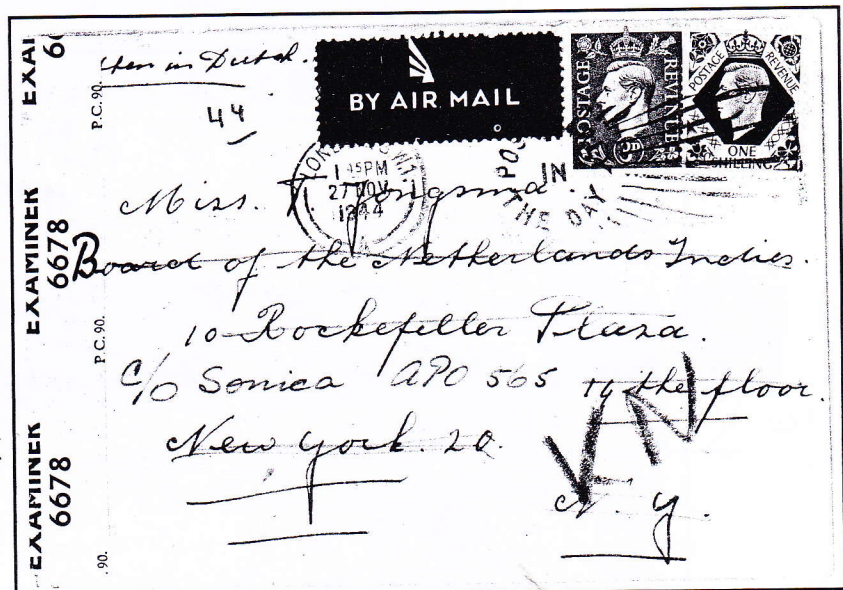 EXAMINER 6678
EXAMINER 6678
P.C. 90.
P.C. 90.
90.
in Dutch.
44
BY AIR MAIL
POSTAGE REVENUE
POSTAGE REVENUE
ONE SHILLING
1 45PM
27 NOV
1944
IN
THE DAY
Miss. T. Jongsma.
Board of the Netherlands Indies.
10 Rockefeller Plaza.
c/o Sonica APO 565 the floor.
New York. 20.
N. Y.